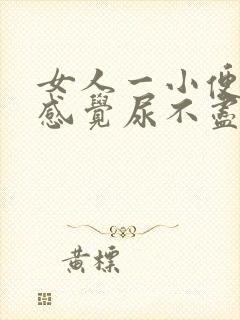 女人一小便
感覺尿不盡
黃標